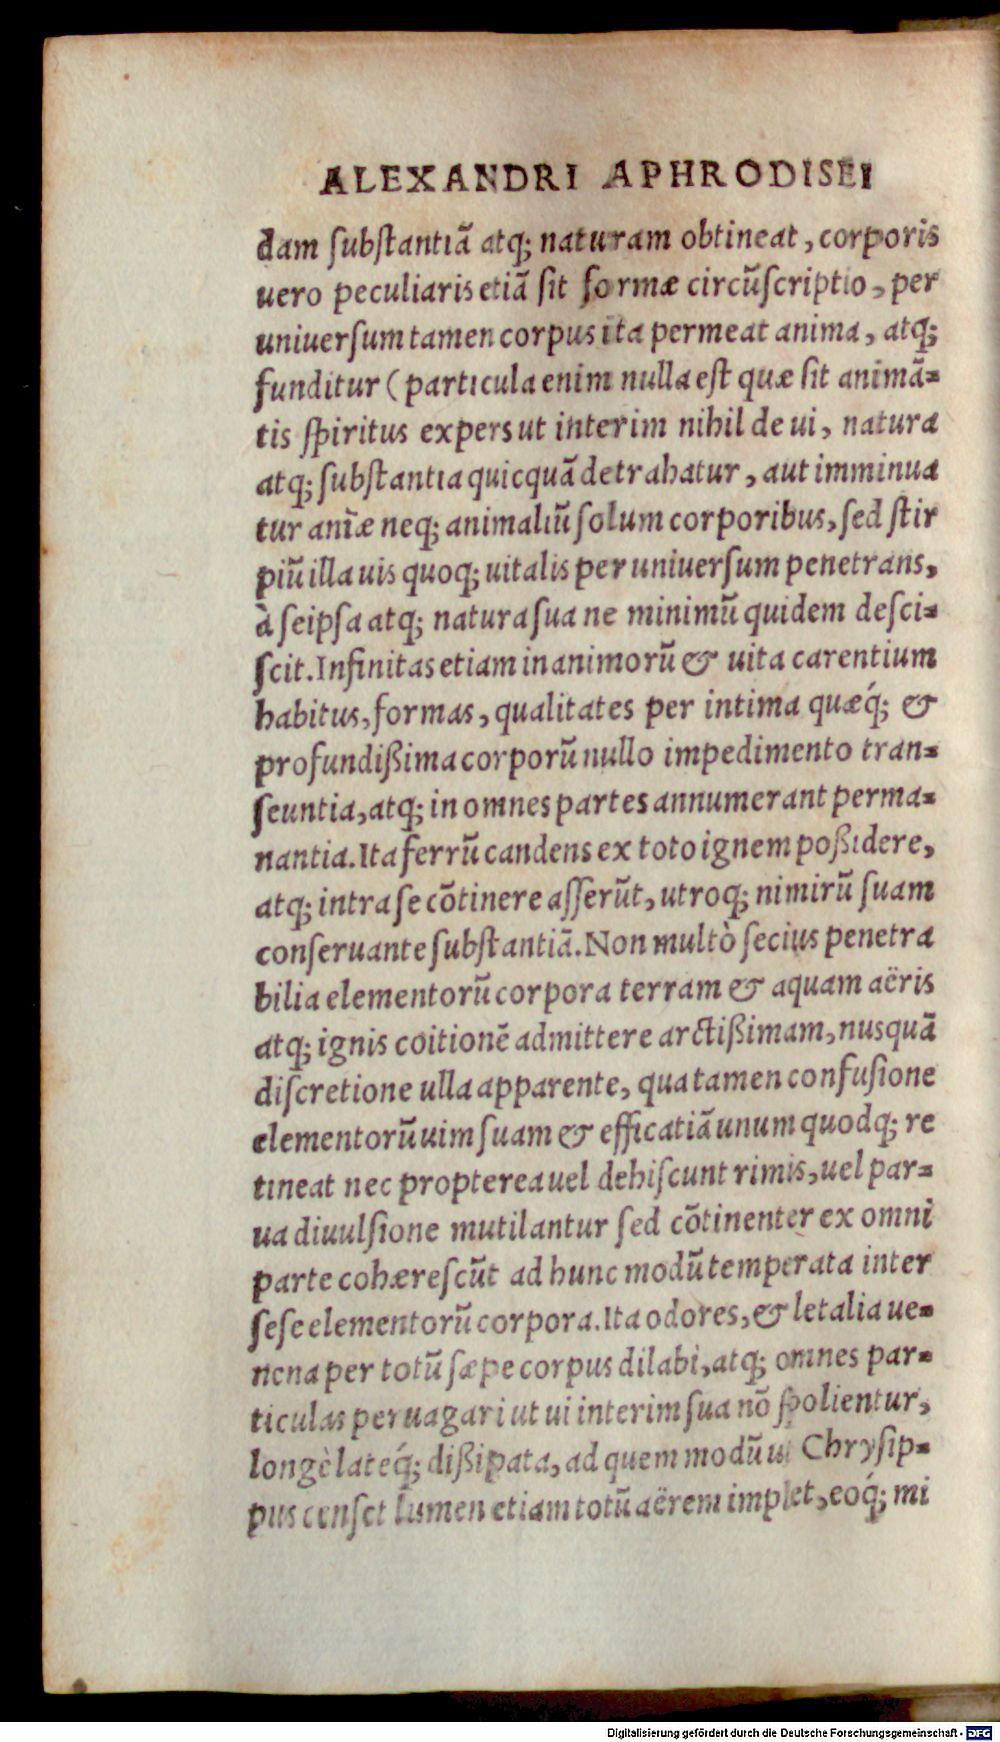 ALEXANDRI APHRODISEI
dam ſubſtantiã atq; naturam obtineat, corporis
uero peculiaris etiã ſit formæ circũſcriptio, per
uniuerſum tamen corpus ita permeat anima, atq;
funditur (particula enim nulla eſt quæ ſit animã-
tis ſpiritus expers ut interim nihil de ui, natura
atq; ſubſtantia quicquã detrahatur, aut imminua
tur anĩæ neq; animaliũ ſolum corporibus, ſed ſtir
piũ illa uis quoq; uitalis per uniuerſum penetrans,
à ſeipſa atq; natura ſua ne minimũ quidem deſci-
ſcit. Infinitas etiam inanimorũ & uita carentium
habitus, formas, qualitates per intima quæq́; &
profundißima corporũ nullo impedimento tran-
ſeuntia, atq; in omnes partes annumerant perma-
nantia. Ita ferrũ candens ex toto ignem poßidere,
atq; intra ſe cõtinere aſſerũt, utroq; nimirũ ſuam
conſeruante ſubſtantiã. Non multò ſecius penetra
bilia elementorũ corpora terram & aquam aëris
atq; ignis coitionẽ admittere arctißimam, nusquã
diſcretione ulla apparente, qua tamen confuſione
elementorũ uim ſuam & efficatiã unum quodq; re
tineat nec propterea uel dehiſcunt rimis, uel par-
ua diuulſione mutilantur ſed cõtinenter ex omni
parte cohæreſcũt ad hunc modũ temperata inter
ſeſe elementorũ corpora. Ita odores, & letalia ue-
nena per totũ ſæpe corpus dilabi, atq; omnes par-
ticulas peruagari ut ui interim ſua nõ ſpolientur,
longè lateq́; dißipata, ad quem modũ ut Chryſip-
pus cenſet lumen etiam totũ aërem implet, eoq́; mi
Digitalisierung gefördert durch die Deutsche Forschungsgemeinschaft - DFG